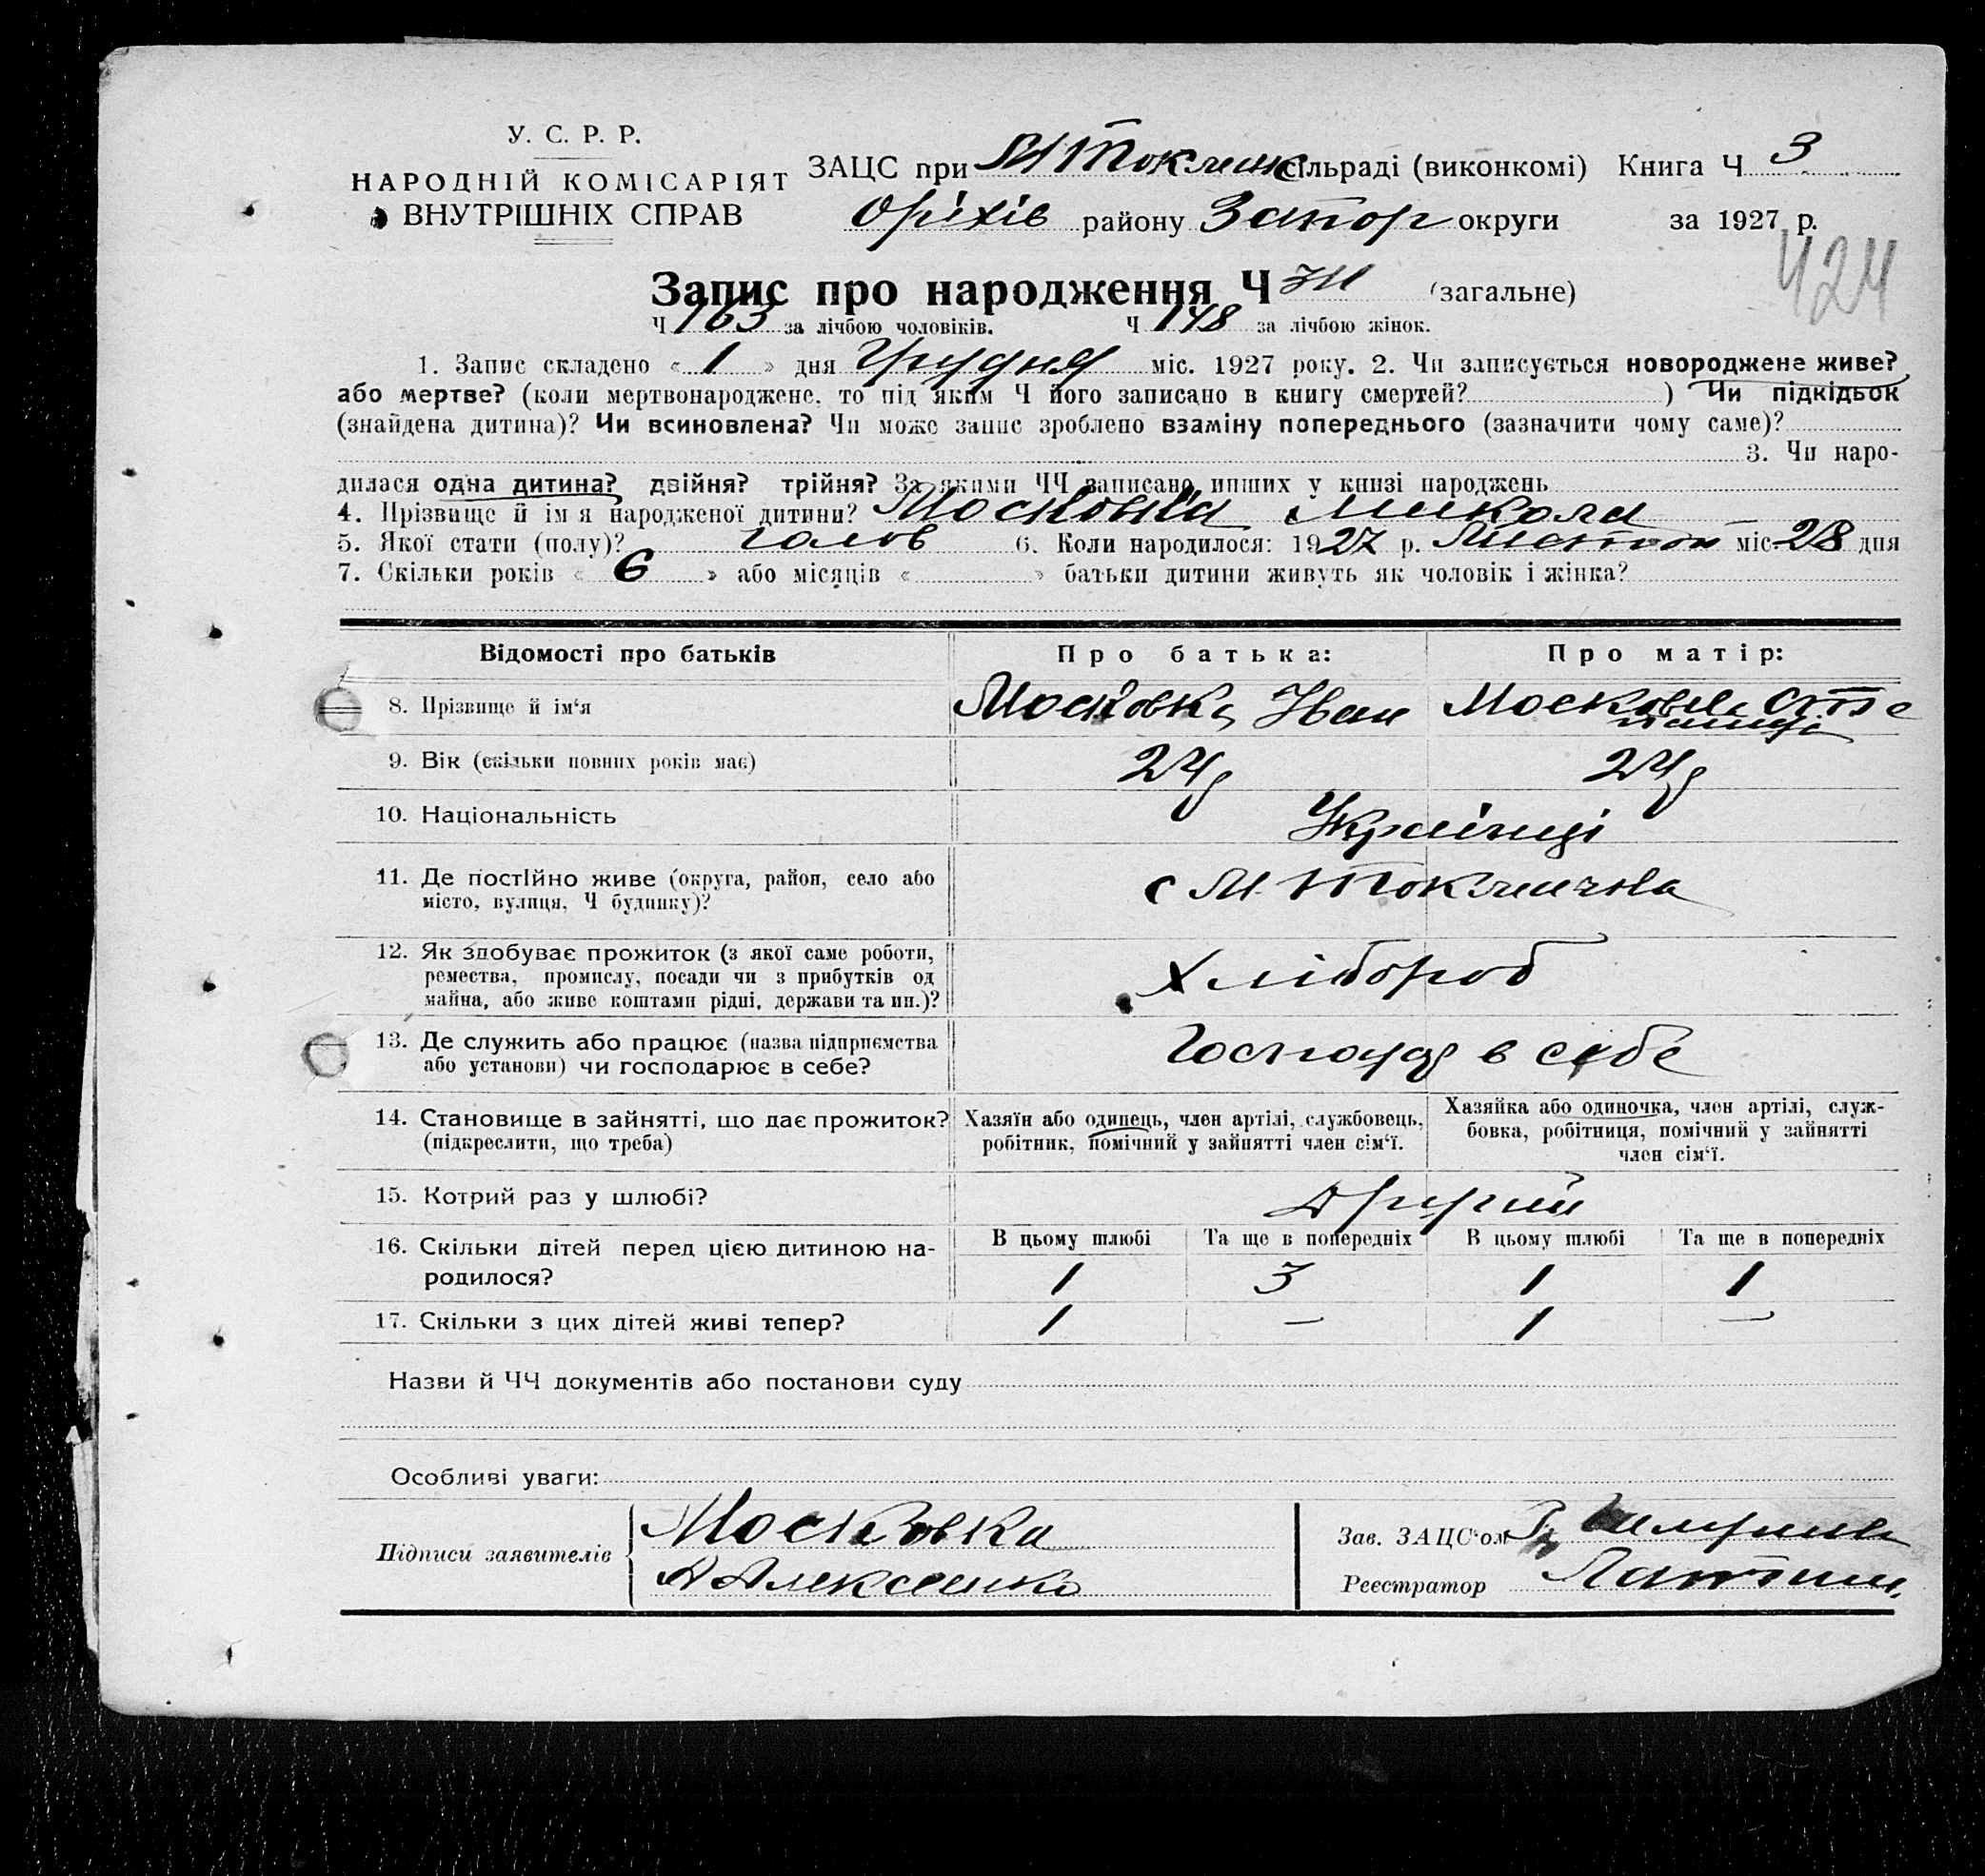 У. С. Р. Р.
НАРОДНІЙ КОМІСАРІЯТ
ВНУТРІШНІХ СПРАВ
ЗАЦС при М Токмац сільраді (виконкомі) Книга Ч 3
Оріхів району Запор округи за 1927 р.
424
Запис про народження Ч 311 (загальне)
Ч 163 за лічбою чоловіків. Ч 148 за лічбою жінок.
1. Запис складено « 1 » дня Грудня міс. 1927 року. 2. Чи записується новороджене живе?
або мертве? (коли мертвонароджене, то під яким Ч його записано в книгу смертей? ) Чи підкідьок
(знайдена дитина)? Чи всиновлена? Чи може запис зроблено взаміну попереднього (зазначити чому саме)?
3. Чи наро-
дилася одна дитина? двійня? трійня? За якими ЧЧ записано инших у книзі народжень
4. Прізвище й імя народженої дитини? Московка Микола
5. Якої стати (полу)? чолов 6. Коли народилося: 1927 р. Листоп міс. 28 дня
7. Скільки років « 6 » або місяців « » батьки дитини живуть як чоловік і жінка?
Відомості про батьків Про батька: Про матір:
8. Прізвище й ім‘я Московка Іван Московка Степанида
9. Вік (скільки повних років має) 24р 24р
10. Національність Українці
11. Де постійно живе (округа, район, село або
місто, вулиця, Ч будинку)? с М. Токмачка
12. Як здобуває прожиток (з якої саме роботи,
ремества, промислу, посади чи з прибутків од
майна, або живе коштами рідні, держави та ин.)? Хлібороб
13. Де служить або працює (назва підприємства
або установи) чи господарює в себе? Господар в себе
14. Становище в зайнятті, що дає прожиток?
(підкреслити, що треба)
Хазяїн або одинець, член артілі, службовець,
робітник, помічний у зайнятті член сім‘ї.
Хазяйка або одиночка, член артілі, служ-
бовка, робітниця, помічний у зайнятті
член сім‘ї.
15. Котрий раз у шлюбі? Другий
В цьому шлюбі Та ще в попередніх В цьому шлюбі Та ще в попередніх
16. Скільки дітей перед цією дитиною на-
родилося? 1 3 1 1
17. Скільки з цих дітей живі тепер? 1 — 1 —
Назви й ЧЧ документів або постанови суду
Особливі уваги:
Підписи заявителів Московка
Алексеенко
Зав. ЗАЦС‘ом
Реєстратор